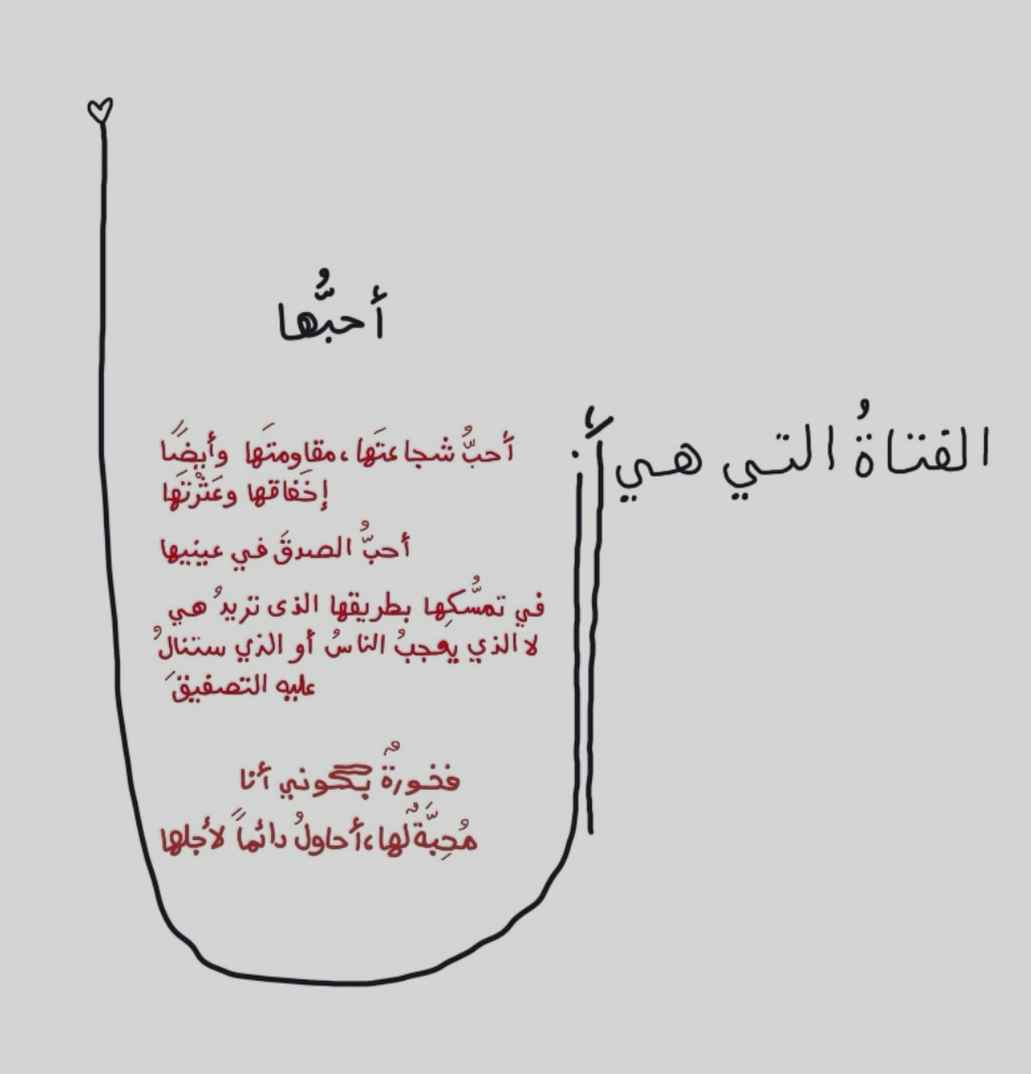 الفتاةُ التي هي أنا
أحبُّها
أحبُّ شجاعتَها، مقاومتَها وأيضًا
إخَفاقها وعَثْرتَها
أحبُّ الصدقَ في عينيها
في تمسُّكِها بطريقها الذى تريدُ هي
لا الذي يعجبُ الناسُ أو الذي ستنالُ
عليه التصفيقَ
فخورةٌ بكوني أنا
مُحِبَّةٌ لها، أحاولُ دائماً لأجلها